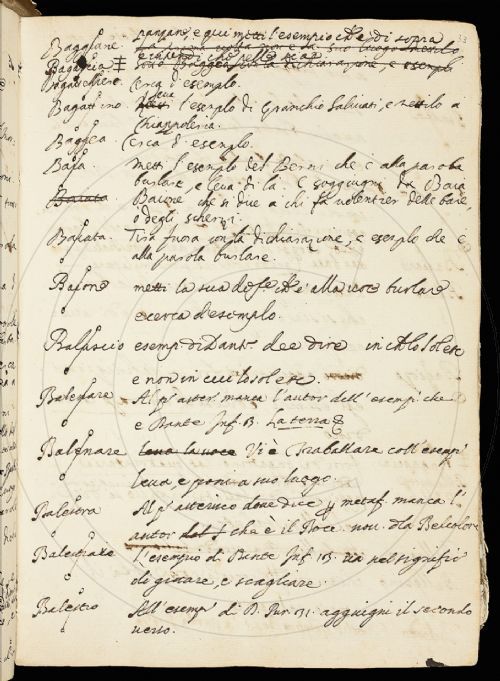 Baggiane. nanzare, e qui metti l'esempio ch'è di sopra
Bagascia
Bagattelliere. Cerca d'esempio.
Bagattino. Leva l'esemplo di Granchio Salviati, e mettilo a
Chiappoleria.
Baggea. Cerca d'esempio.
Baia. metti l'esemplo del Berni che è alla parola
burlare, e leva di là. E soggiugni da Baia
Baione che si dice a chi fa volentieri delle baie,
o degli scherzi.
Baiata. Tira fuora con la dichiarazione, e esemplo che è
alla parola burlare.
Baione metti la sua def.e ch'è alla voce burlare
e cerca d'esemplo.
Balascio esemp. di Dante dee dire in ch lo Sol ere
e non in cui lo sol ere.
Balestrare Al p.o aster.o manca l'autor dell'esemp. che
è Dante Inf. 13. La terra
leva la voce Vi è Traballare coll'esemp.
leva e poni a suo luogo.
Balestra Al p.o asterisco dove dice metaf. manca l'
autor che è il Bocc. nov. della Belcolore
Balestrare l'esempio di Dante Inf. 13. va nel signific.o
di gittare, e scagliare.
Balestro All'esemp. di D. Pur. 31. aggiugni il secondo
verso.